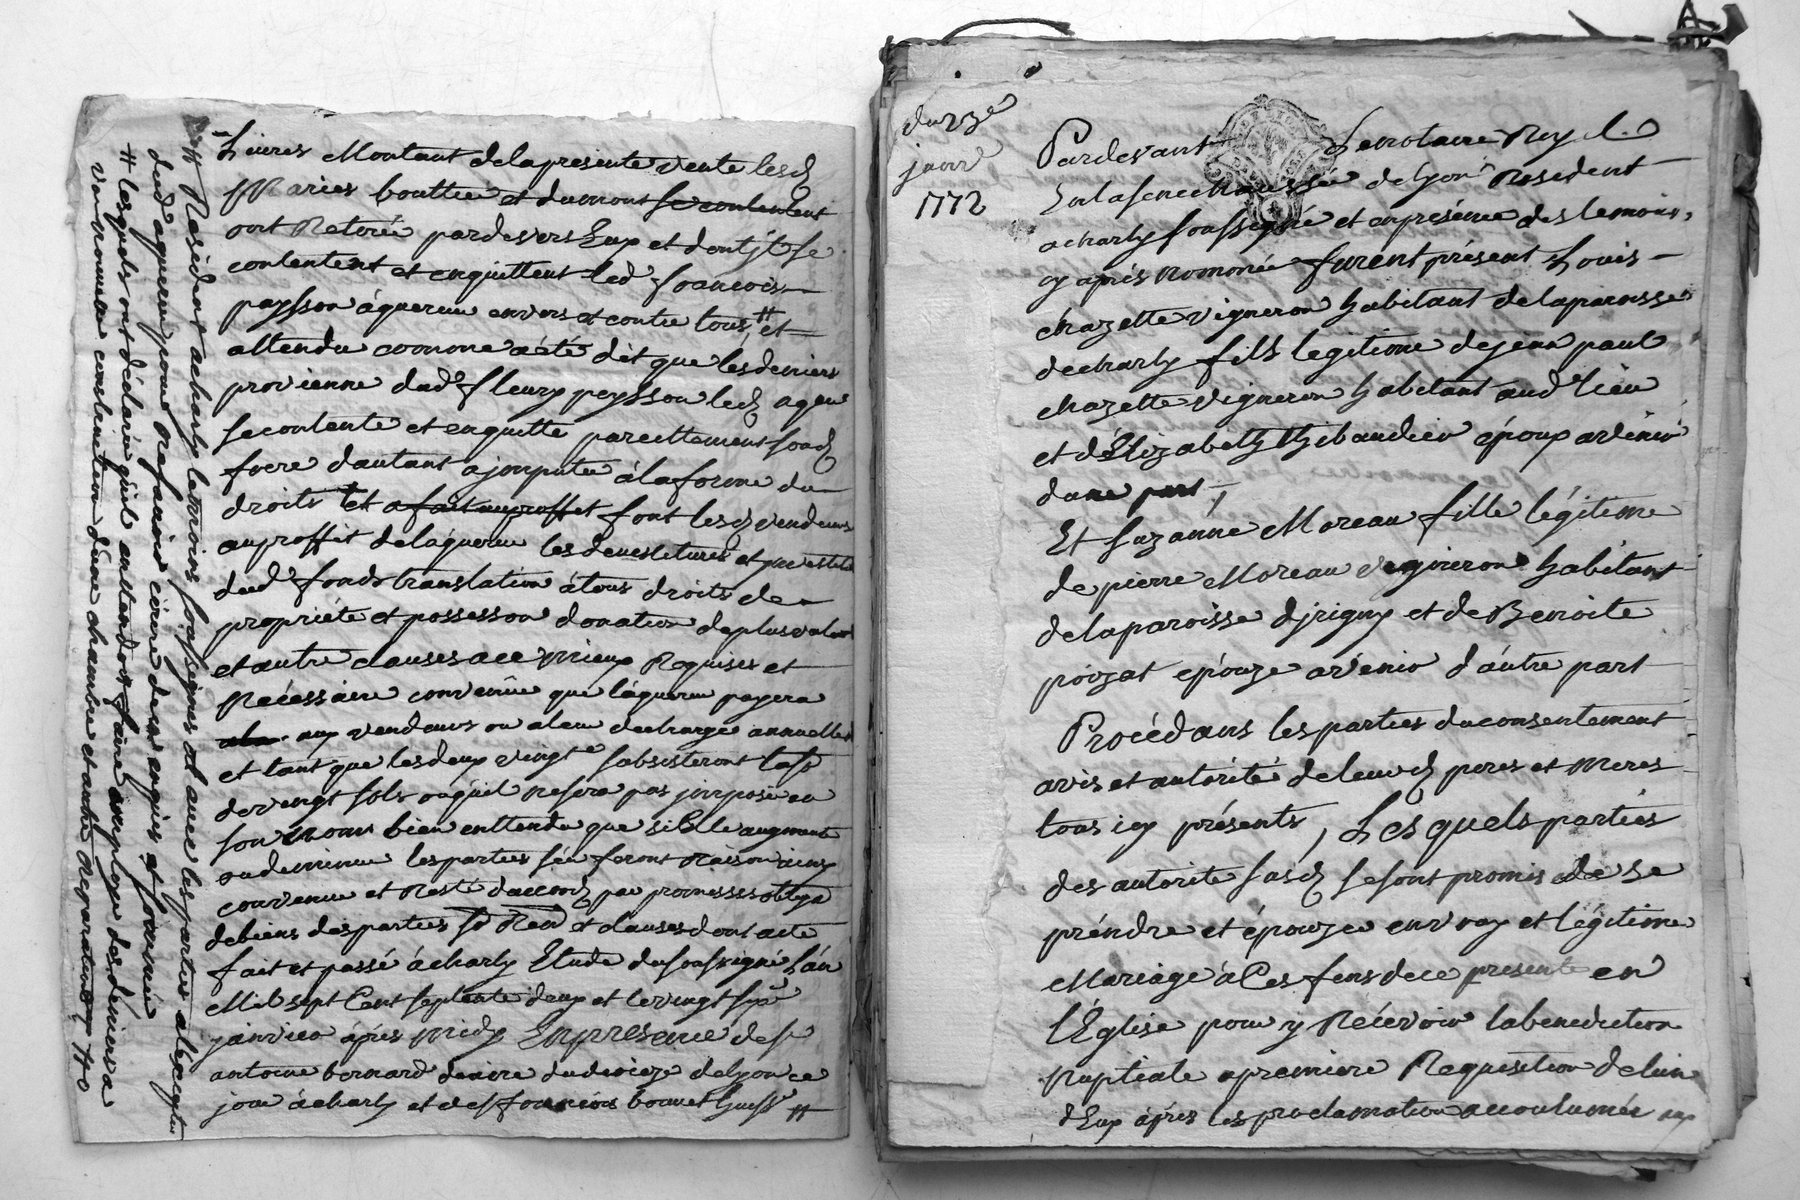 Livres Montant dela presente vente lesd
Maries bouttee et dumont se contentent
ont Retirée pardevers Eux et dont jls se
contentent et enquittent led francois
peysson aquereur envers et contre tous # et
attendu comme a été dit que les deniers
provienne dud fleury peysson led
se contente et enquitte pareillement sond
frere dautant a jmputer à la forme du
droits et a fait au proffit et font lesd vendeurs
au proffit de laquereur les devestitures et
dud fonds translation à tous droits de
propriéte et possession donation de plus valeur
et autre clauses a ce mieux Requises et
Nécéssaire convenüe que láquereur payera
aux vendeurs ou a leur decharge annuellem
et tant que les deux vingt subsisteront
de vingt sols quil ne sera pas jmposé en
son nom bien entendu que si elle augmente
ou deminue les parties feront Raison ainsy
convenu et Resté daccord par promesses obliga
de biens des parties et clauses dont acte
fait et passé à charly Etude du soussigné Lán
Mil sept Cent septente deux et le vingt sept
janvier áprès midy En presence de sr
antoine bernard du dioceze de lyon ce
jour à charly et de sr francois bonnet #
# Résident a charly temoins soussignés et avec les parties
dud aquereur pour
# lesquels ont déclarés quil entendoit faire employe des deniers a
une nouvelle construction d'une chambre et autre Reparations #
du 23e
janv
1772
Pardevant Le notaire Royal
En la senechaussée de lyon Résident
a charly soussigné et en présence des temoins
cy après nommée furent présent Louis
chazette vigneron habitant de la paroisse
de charly fils legitime de jean paul
chazette vigneron habitant aud lieu
et d'Elizabeth Thibaudier époux avénir
dune part,
Et Suzánne Moreau fille légitime
de pierre Moreau vigneron habitant
de la paroisse djrigny et de Benoite
poizat épouze avénir d'áutre part
Procédans les parties du consentement
avis et autórité de leurd peres et meres
tous icy présents, Les quels parties
des autorite susd se sont promis de se
préndre et épouzer en vray et légitime
Mariage à Ces fins de ce presenter en
l'Église pour y Récévoir la benediction
Nuptiale a premiere Requisition de lun
d'Eux áprès les proclamation accoutumée